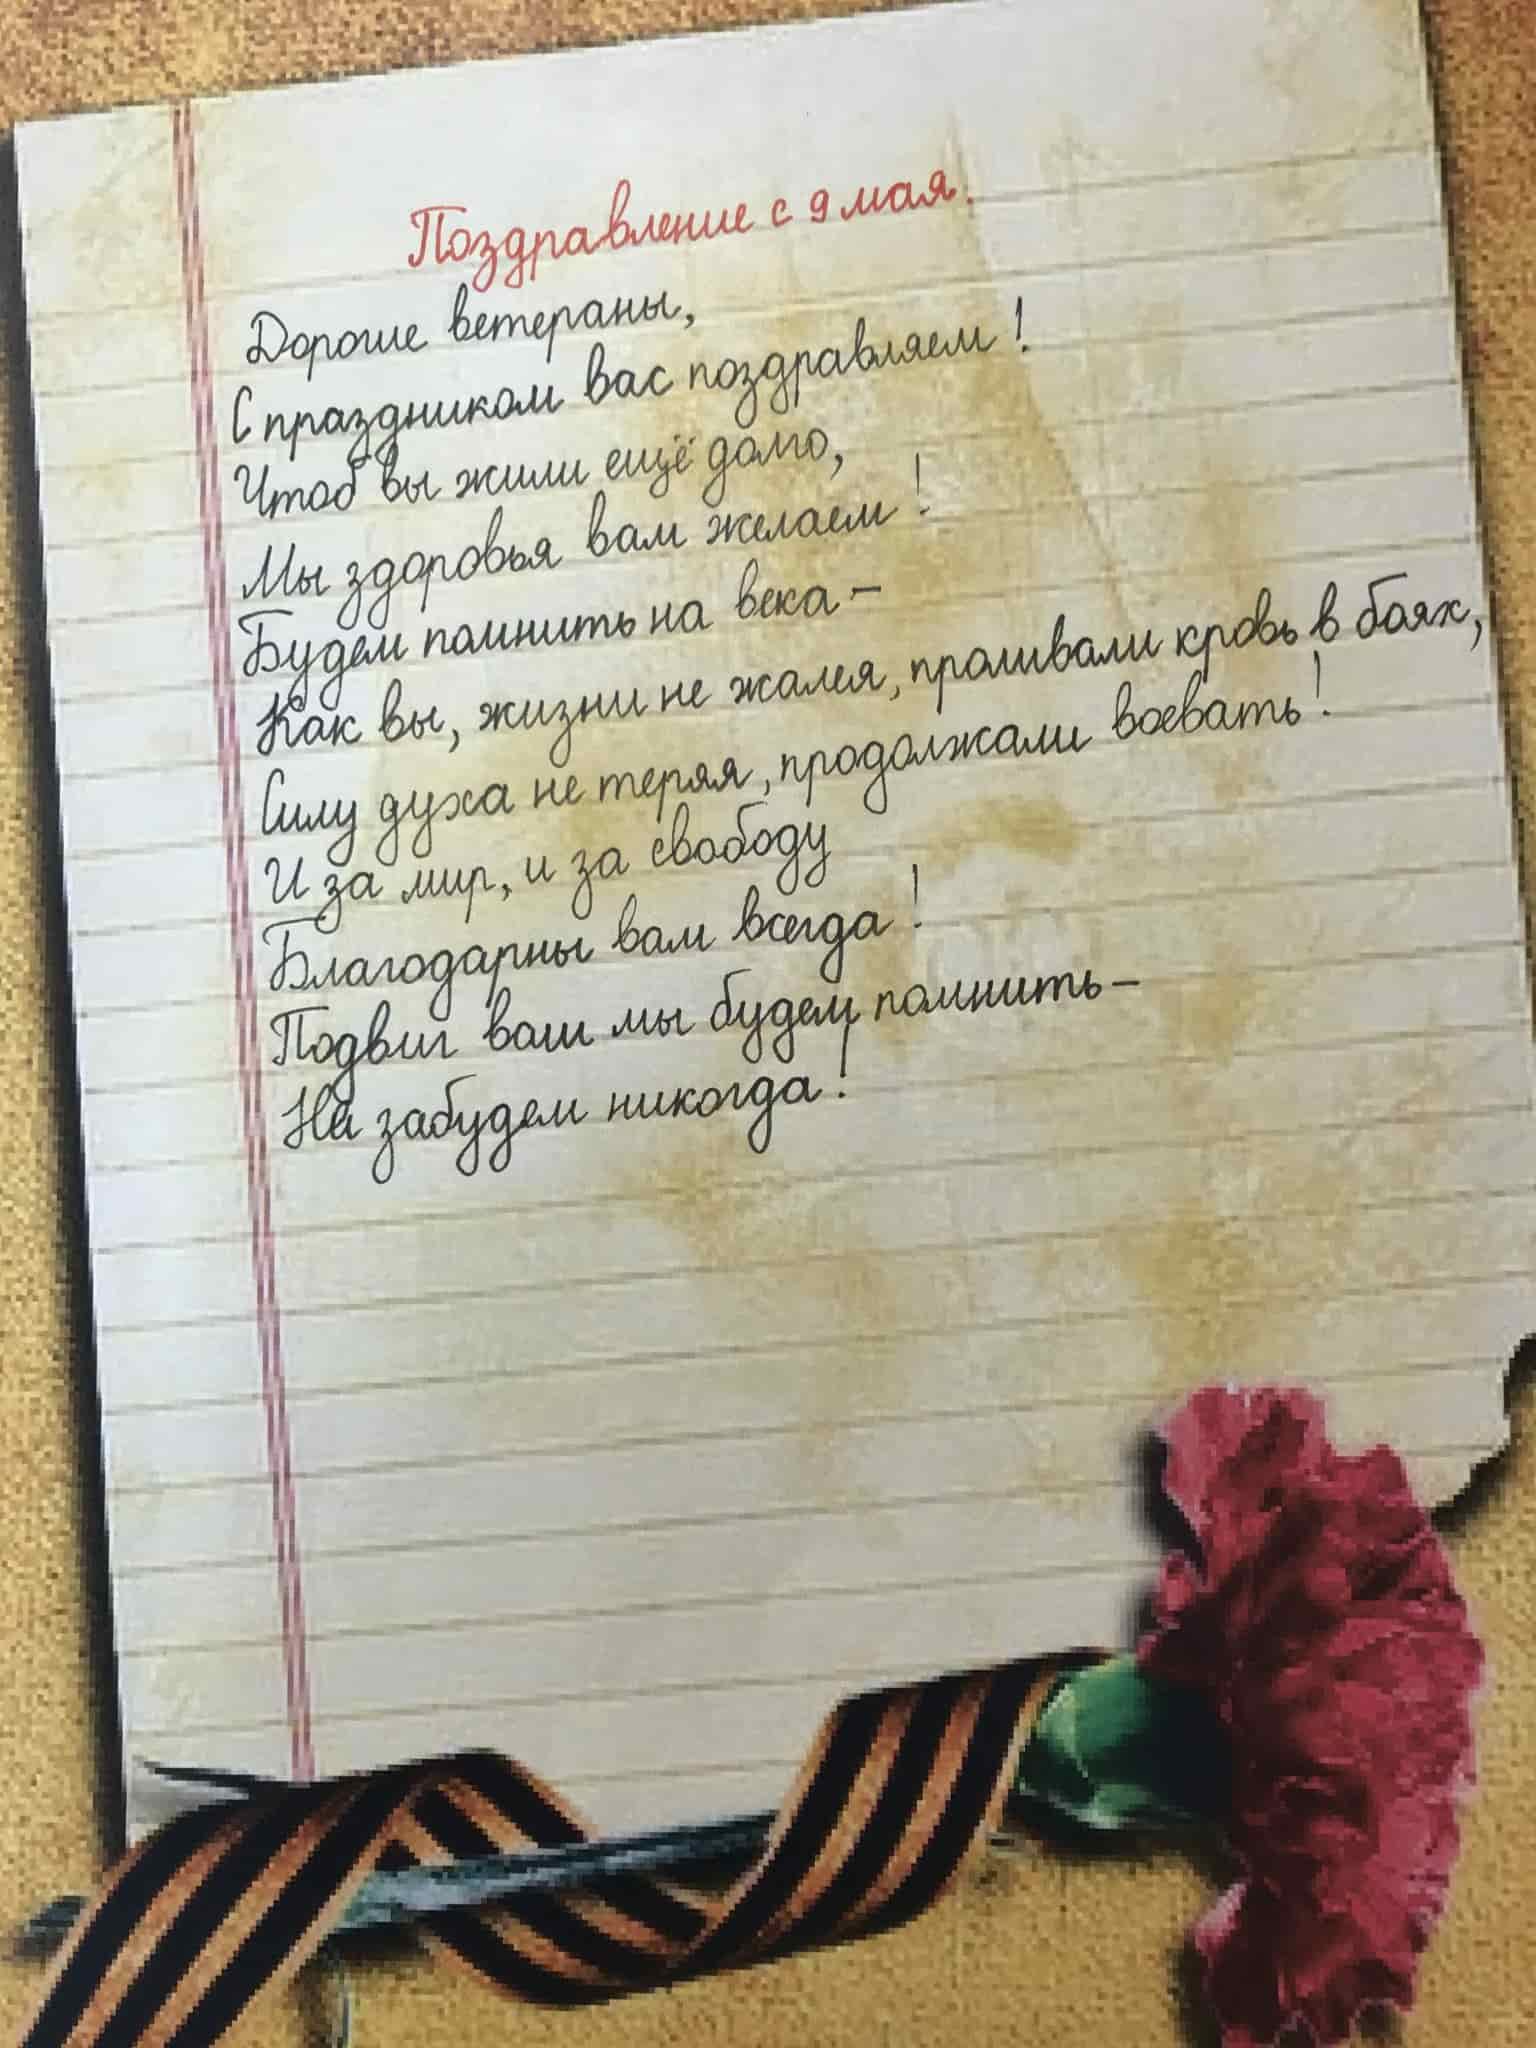 Поздравление с 9 мая.
Дорогие ветераны,
С праздником вас поздравляем!
Чтоб вы жили ещё долго,
Мы здоровья вам желаем!
Будем помнить на века –
Как вы, жизни не жалея, проливали кровь в боях,
Силу духа не теряя, продолжали воевать!
И за мир, и за свободу
Благодарны вам всегда!
Подвиг ваш мы будем помнить –
Не забудем никогда!